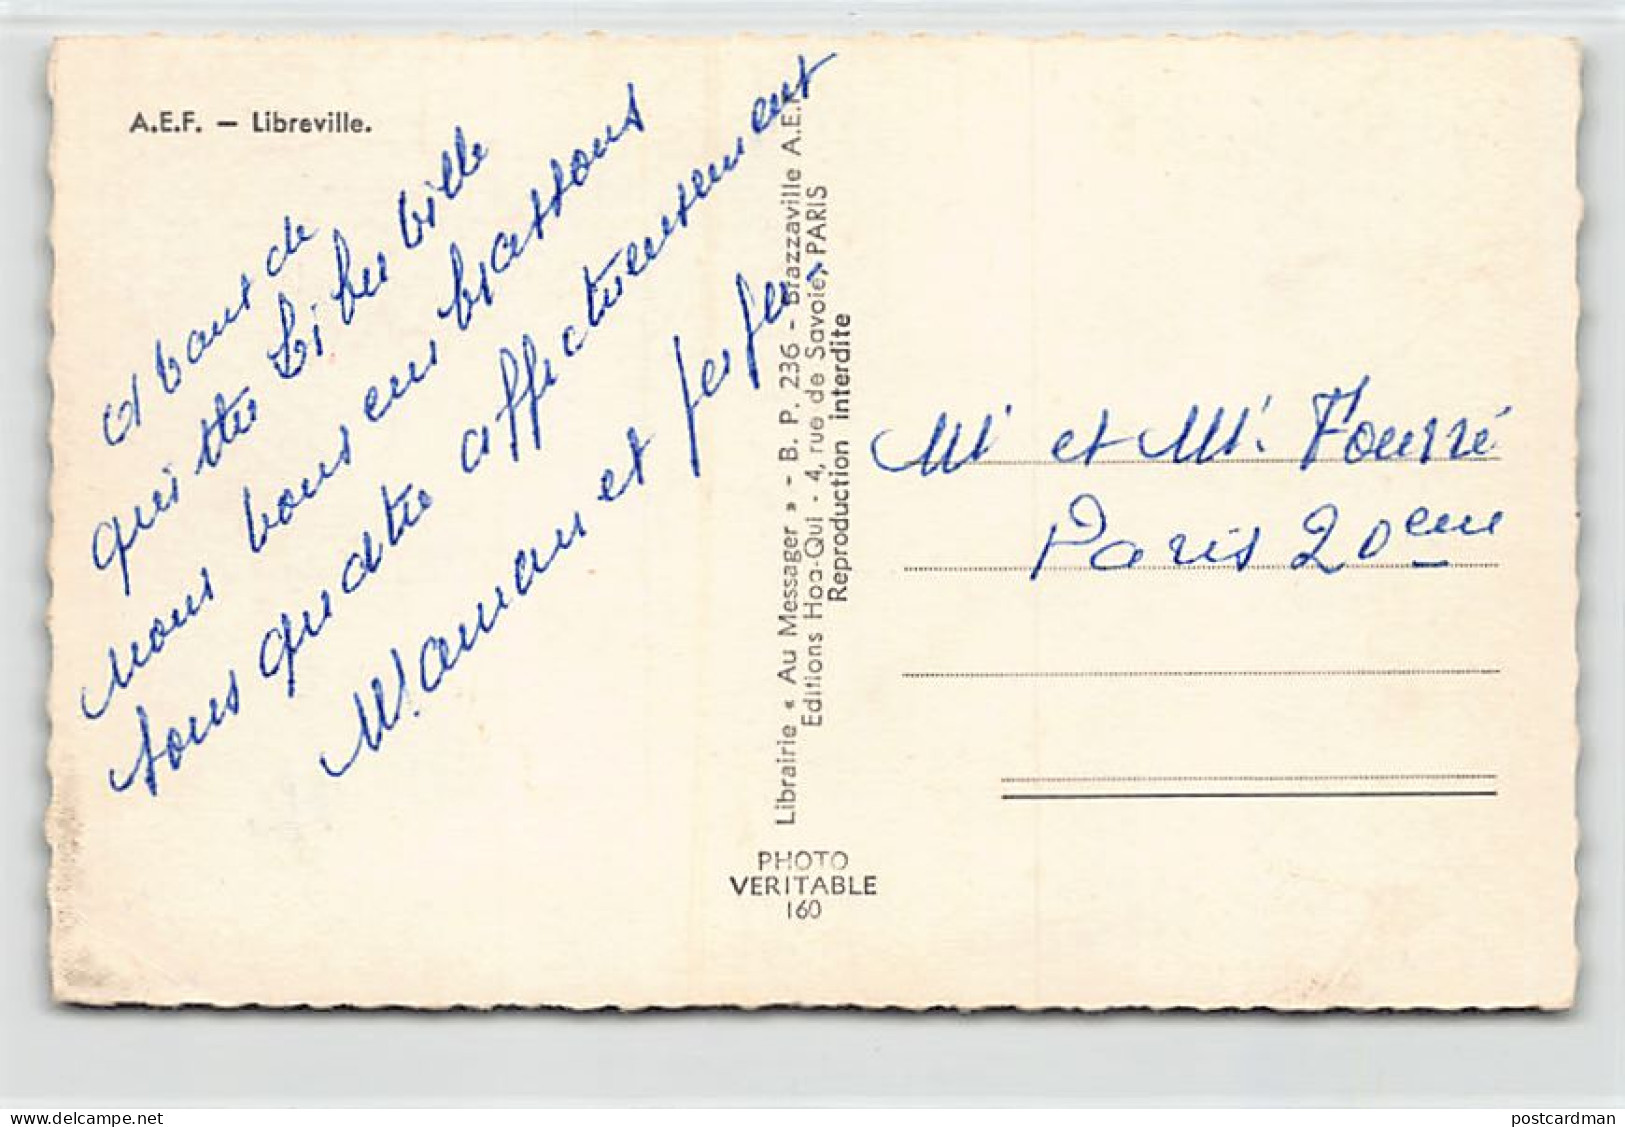 A.E.F. — Libreville.
avant de
quitter Libreville
nous vous embrassons
tous quatre affectueusement
M. aman et
Librairie « Au Messager » - B. P. 236 - Brazzaville A.E.F.
Editions Hoa-Qui - 4, rue de Savoie, PARIS
Reproduction interdite
PHOTO
VERITABLE
160
Mr et Mr. Fourré
Paris 20eme
delcampe.net
postcardman